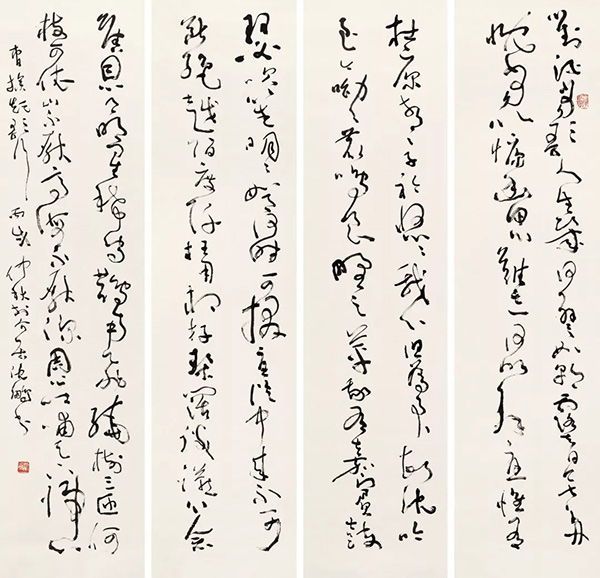 對酒當歌人生幾何譬如朝露去日苦多
慨當以慷幽思難忘何以解憂惟有
杜康青青子衿悠悠我心但為君故沈吟
至今呦呦鹿鳴食野之苹我有嘉賓鼓
瑟吹笙明明如月何時可掇憂從中來不可
斷絕越陌度阡枉用相存契闊談讌心念
舊恩月明星稀烏鵲南飛繞樹三匝何
枝可依山不厭高海不厭深周公吐哺天下歸心
曹操短歌行丙戌仲秋於介居沈鵬書